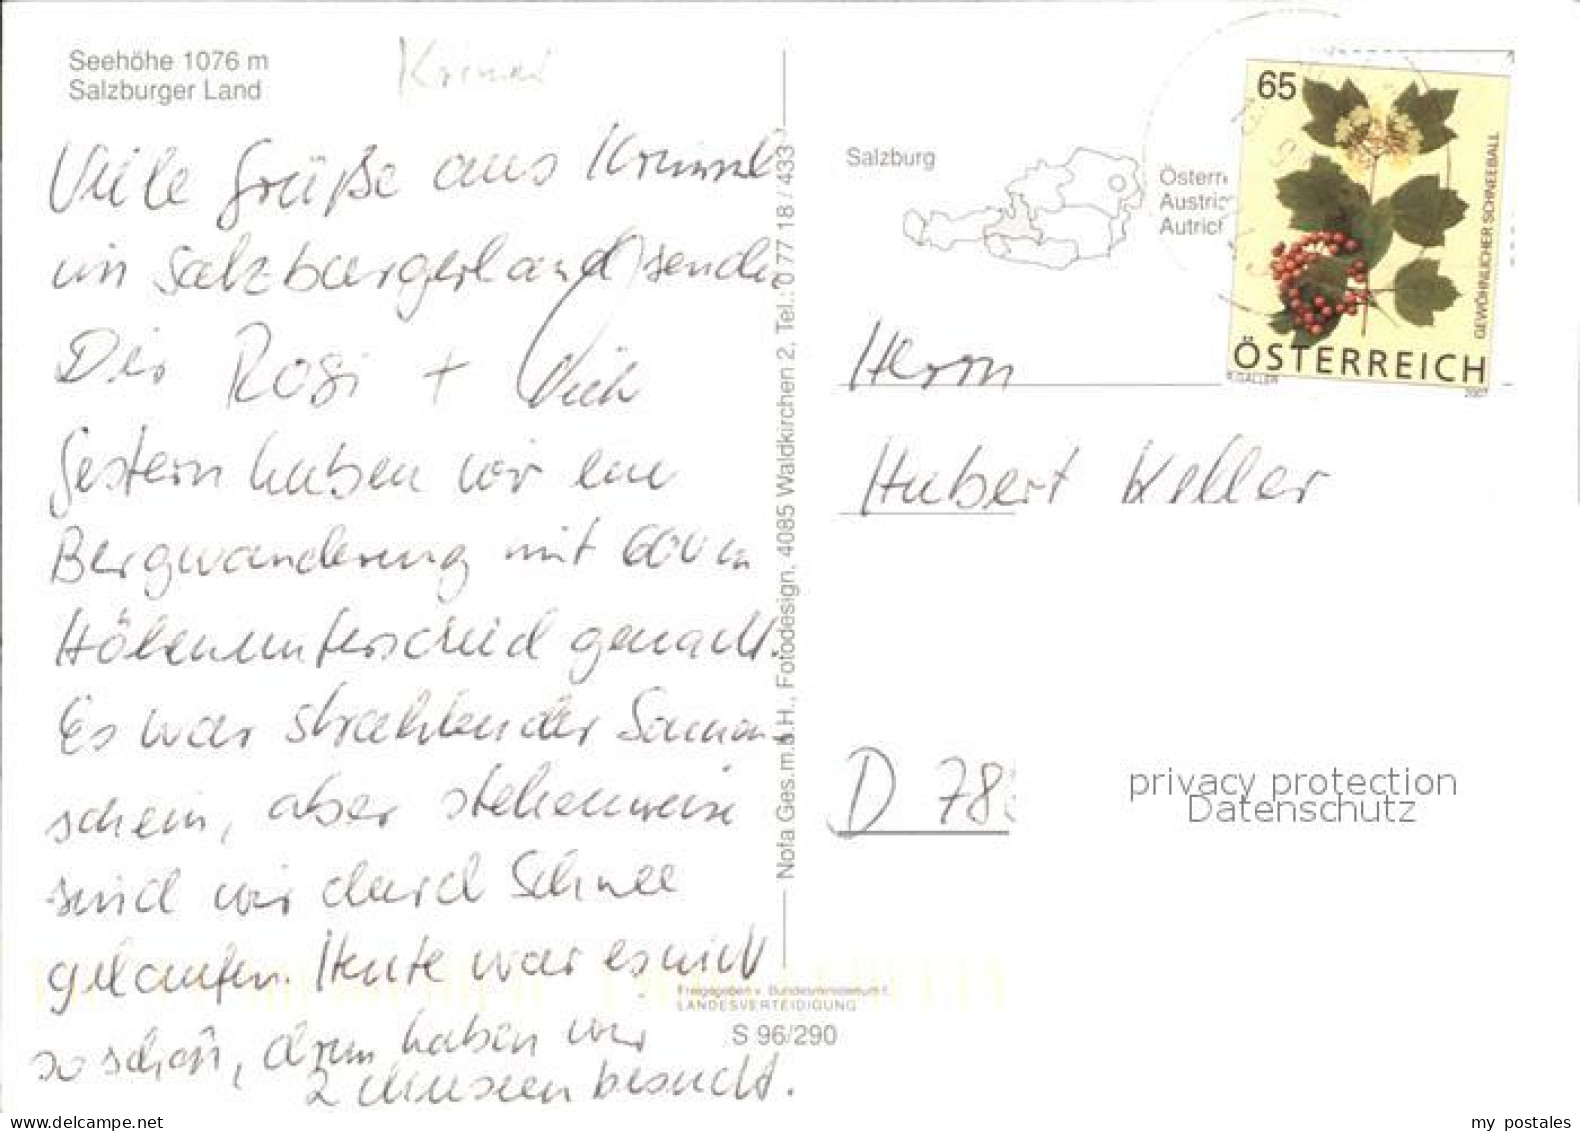 Seehöhe 1076 m
Salzburger Land
Viele Grüße aus Krimml
im Salzburgerland senden
Dir Rosi +
Gestern haben wir eine
Bergwanderung mit 600 m
Höhenunterschied gemacht.
Es war strahlender Sonnen-
schein, aber stellenweise
sind wir durch Schnee
gelaufen. Heute war es nicht
so schön, drum haben wir
2 Museen besucht.
Nofa Ges.m.b.H., Fotodesign, 4085 Waldkirchen 2, Tel.: 0 77 18 / 433
Freigegeben v. Bundesministerium f.
LANDESVERTEIDIGUNG
S 96/290
Salzburg
Österr
Austri
Autric
65
GEWÖHNLICHER SCHNEEBALL
ÖSTERREICH
K.GALLER
2007
Herrn
Hubert Keller
D 78
privacy protection
Datenschutz
my postales